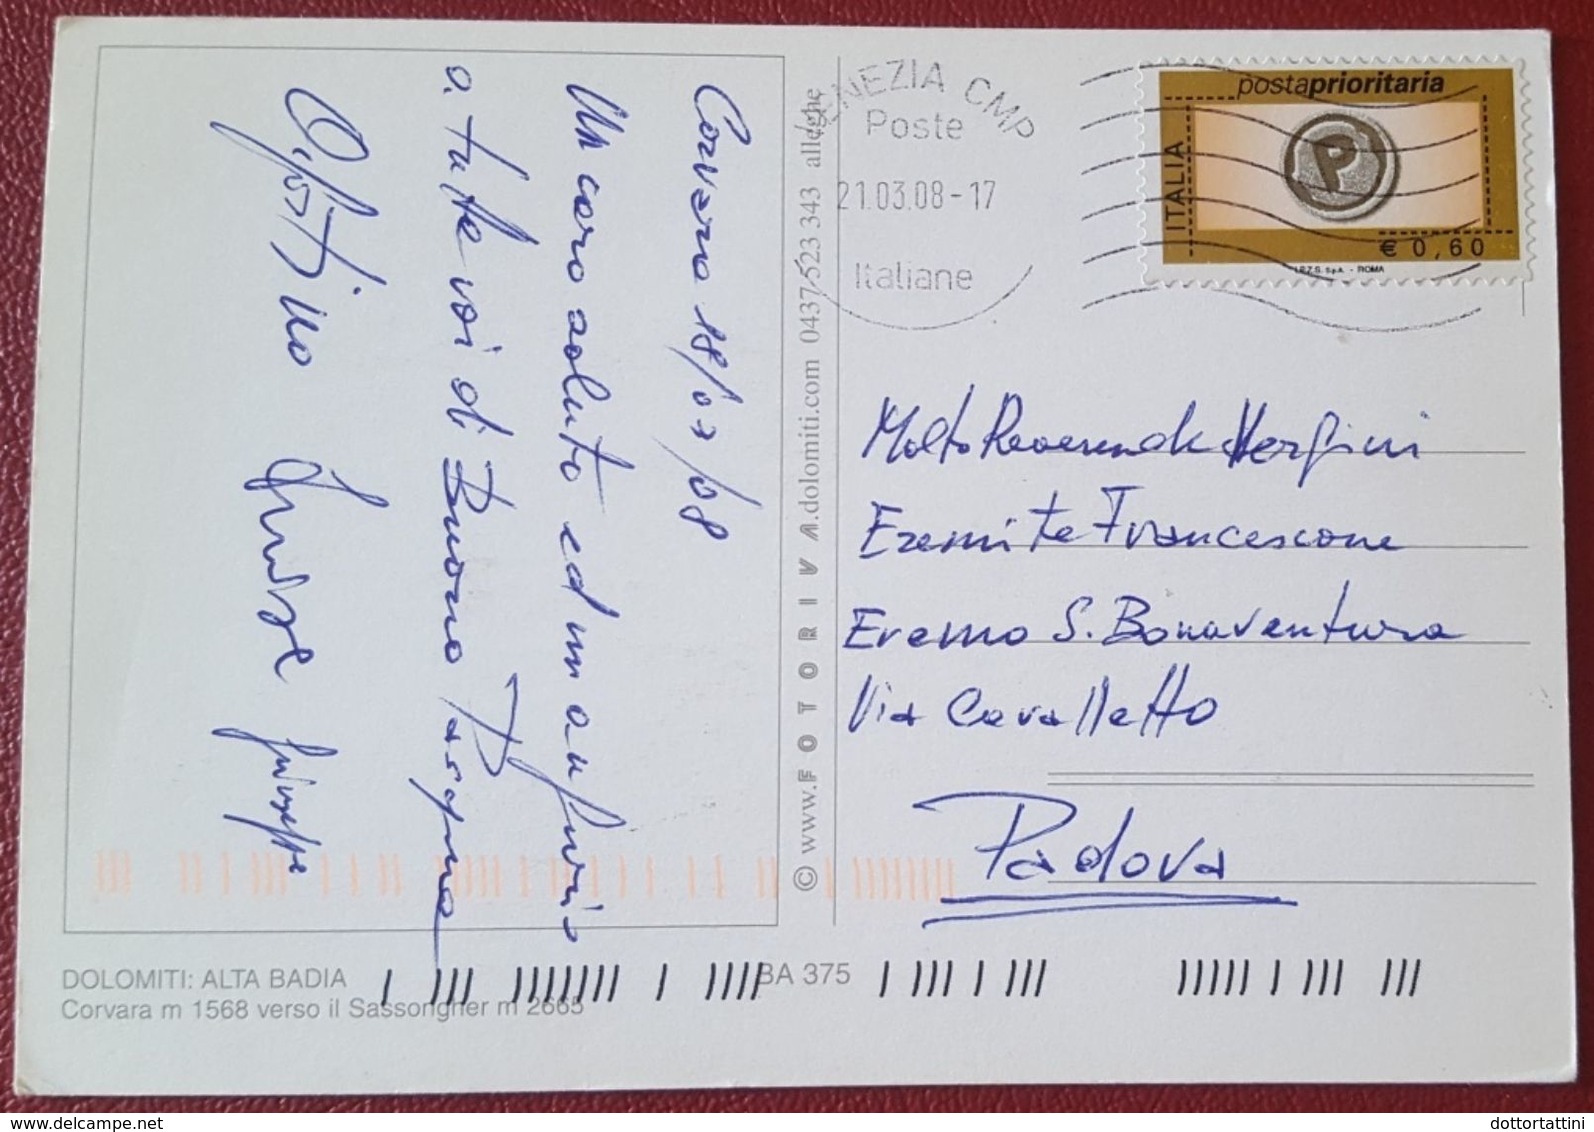 Corvara 18/03/08
Un caro saluto ed un augurio
a tutte voi di Buona Pasqua
Agostino Luise Giuseppe
© www.FOTORIVA.dolomiti.com 0437 523 343 alleghe
VENEZIA CMP
Poste
21.03.08-17
Italiane
postaprioritaria
ITALIA
P
€ 0,60
I.P.Z.S. S.p.A. - ROMA
Molto Reverende Vergini
Eremite Francescane
Eremo S. Bonaventura
Via Cavalletto
Padova
DOLOMITI: ALTA BADIA
Corvara m 1568 verso il Sassongher m 2665
BA 375
delcampe.net
dottortattini